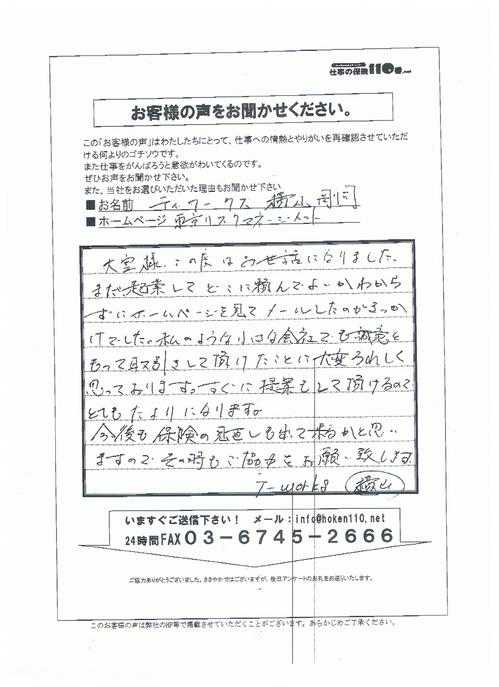 仕事の保険110番.net
お客様の声をお聞かせください。
この「お客様の声」はわたしたちにとって、仕事への情熱とやりがいを再確認させていただ
ける何よりのゴチソウです。
また仕事をがんばろうと意欲がわいてくるのです。
ぜひお声をお聞かせ下さい。
また、当社をお選びいただいた理由もお聞かせ下さい
■お名前 ティワークス 横山 剛司
■ホームページ 東京リスクマネージメント
大宮様、この度はお世話になりました。
まだ起業してどこに頼んでよいかわから
ずにホームページを見てメールしたのがきっか
けでした。私のような小さな会社でも誠意を
もって取引きして頂けたことに大変うれしく
思っております。すぐに提案もして頂けるので
とてもたよりになります。
今後も保険の見直しも出て来るかと思い
ますので その時もご協力をお願い致します
T-works 横山
いますぐご送信下さい! メール:info@hoken110.net
24時間FAX 03-6745-2666
ご協力ありがとうございました。ささやかではございますが、後日アンケートのお礼をお送りいたします。
このお客様の声は弊社のHP等で掲載させていただくことがございます。あらかじめご了承ください。